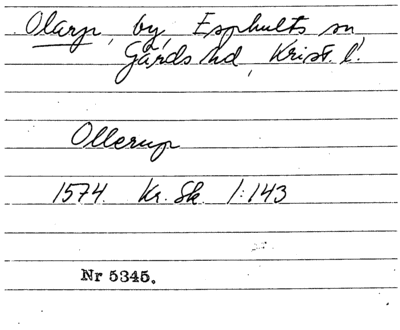 Olarp, by, Esphults sn,
Gärds hd, Krist. l.
Ollerup
1574. Kr. Sk. 1:143
Nr 5345.